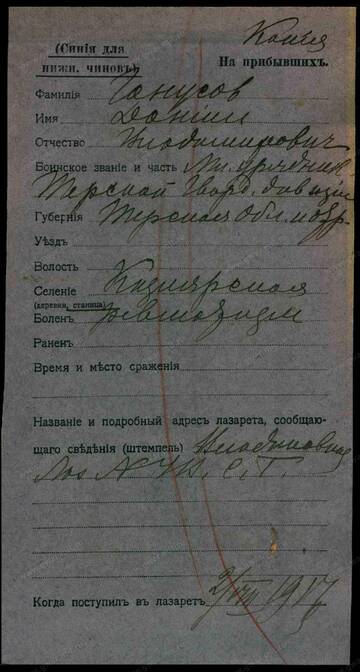 Копія
(Синія для нижн. чиновъ)
На прибывшихъ.
Фамилія Ганусов
Имя Даніил
Отчество Владимирович
Воинское званіе и часть Мл. урядник
Терской Гвард. дивизіи
Губернія Терская обл.
Уѣздъ
Волость
Селеніе Кизлярская
(деревня, станица)
Боленъ
Раненъ
Время и мѣсто сраженія
Названіе и подробный адресъ лазарета, сообщаю-
щаго свѣдѣнія (штемпель)
С. Г.
Когда поступилъ въ лазаретъ 2/VII 1917